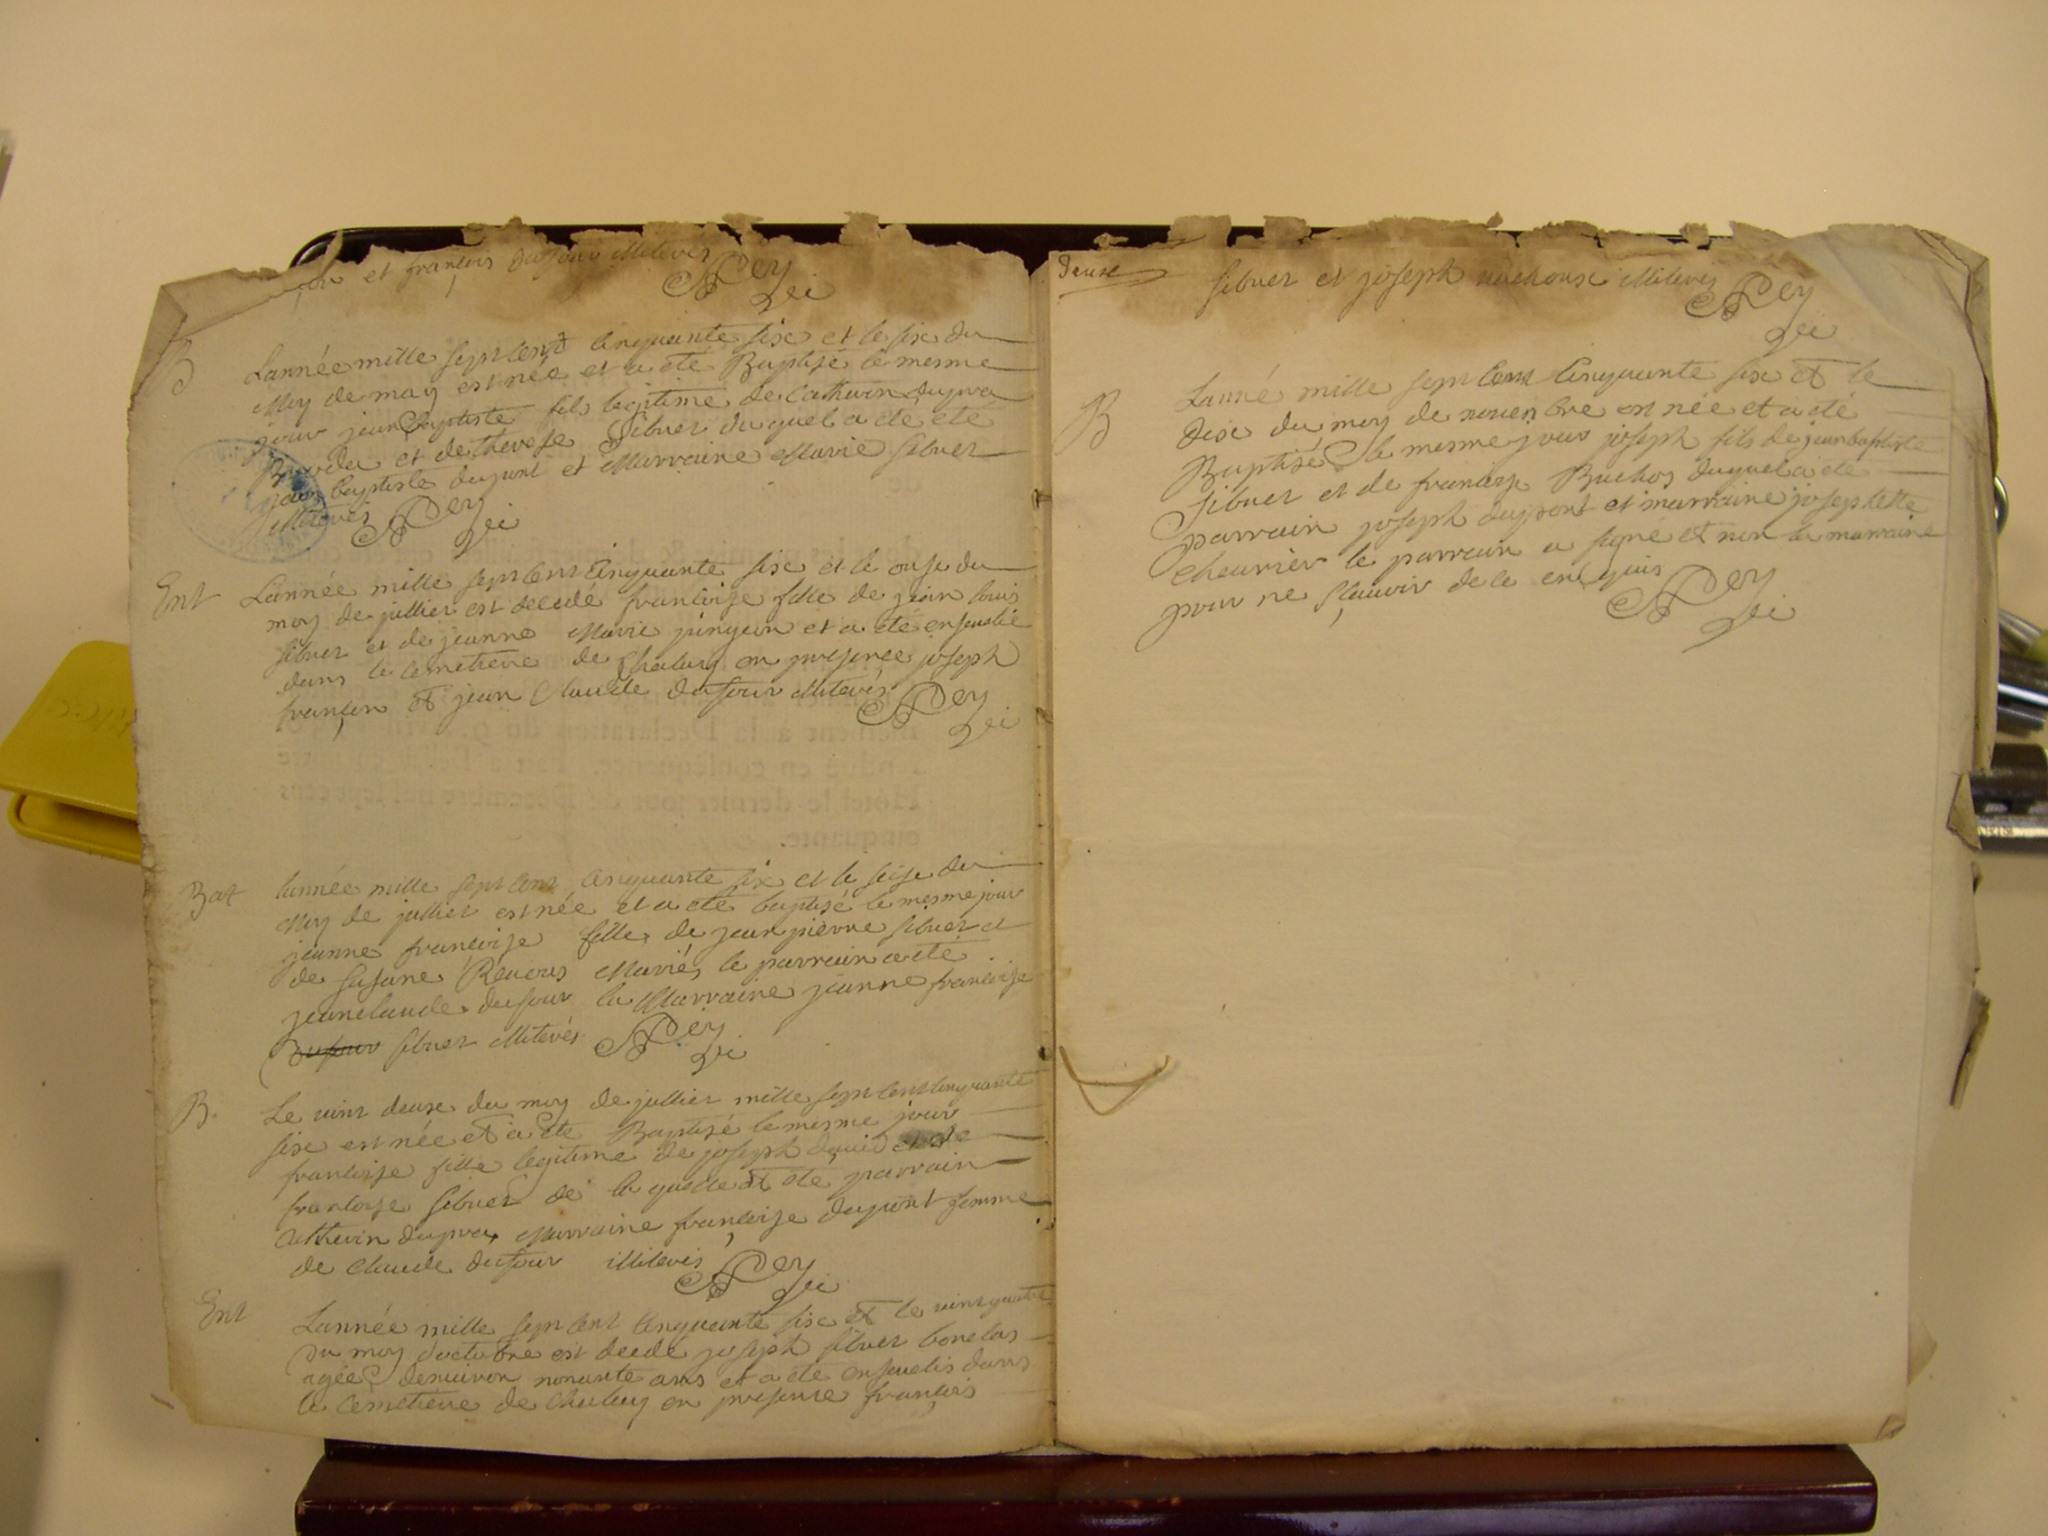 et françois dufour illiterés
Rey
B
Lannée mille sept cent cinquante six et le six du
moy de may est née et a été Baptisé le mesme
jour jean Baptiste fils legitime de Catherin dupra
et de Therese sibuet duquel a été
jean baptiste dupont et Marraine Marie sibuet
illiterés Rey
Ent
Lannée mille sept cent cinquante six et le onse du
moy de jullier est decede francoise fille de jean louis
sibuet et de jeanne Marie et a été enseveli
dans le cemetiere de en presence joseph
françon et jean Claude dufour illiterés Rey
Bat
lannée mille sept cent cinquante six et le seise du
moy de jullier est née et a été baptisé le mesme jour
jeanne francoise fille de jean pierre sibuet et
de susane Reuous Mariés le parrain a été
jeanclaude dufour la Marraine jeanne francoise
dufour sibuet illiterés Rey
B.
Le vint deuse du moy de jullier mille sept cent cinquante
six est née et a été Baptisé le mesme jour
francoise fille legitime de joseph david et de
francoise sibuet de la quelle et été parrain
Catherin dupra Marraine françoise dupont femme
de Claude dufour illiterés Rey
Ent
Lannée mille sept cent cinquante six et le vint quatre
du moy doctobre est decede joseph sibuet bonelas
agée denuiron nonante ans et a été enseuelis dans
le cemetiere de en presence françois
deuse
sibuet et joseph illiterés
Rey
B
Lanné mille sept cent Cinquante six et le
dix du moy de nouenbre est née et a été
Baptisé le mesme jour joseph fils de jean baptiste
sibuet et de francoise Buchos duquel a été
parrain joseph dupont et marraine josephette
cheurier le parrain a signé et non la marraine
pour ne scauoir de ce enquis Rey